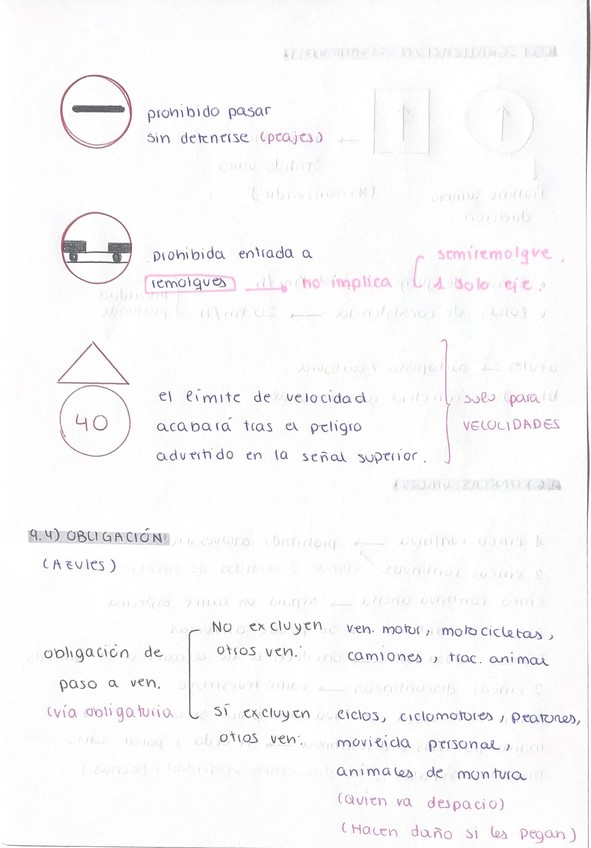 prohibido pasar
sin detenerse (peajes)
prohibida entrada a
remolgues → no implica { semiremolgve.
1 solo eje.
40
el límite de velocidad
acabará tras el peligro
advertido en la señal superior.
solo para
VELOCIDADES
9.4) OBLIGACIÓN
(Azules)
obligación de
paso a veh.
(vía obligatoria
No excluyen
otros veh:
veh. motor, motocicletas,
camiones, trac. animal
sí excluyen
otros veh:
ciclos, ciclomotores, peatones,
movilida personal,
animales de montura
(Quien va despacio)
(Hacen daño si les pegan)